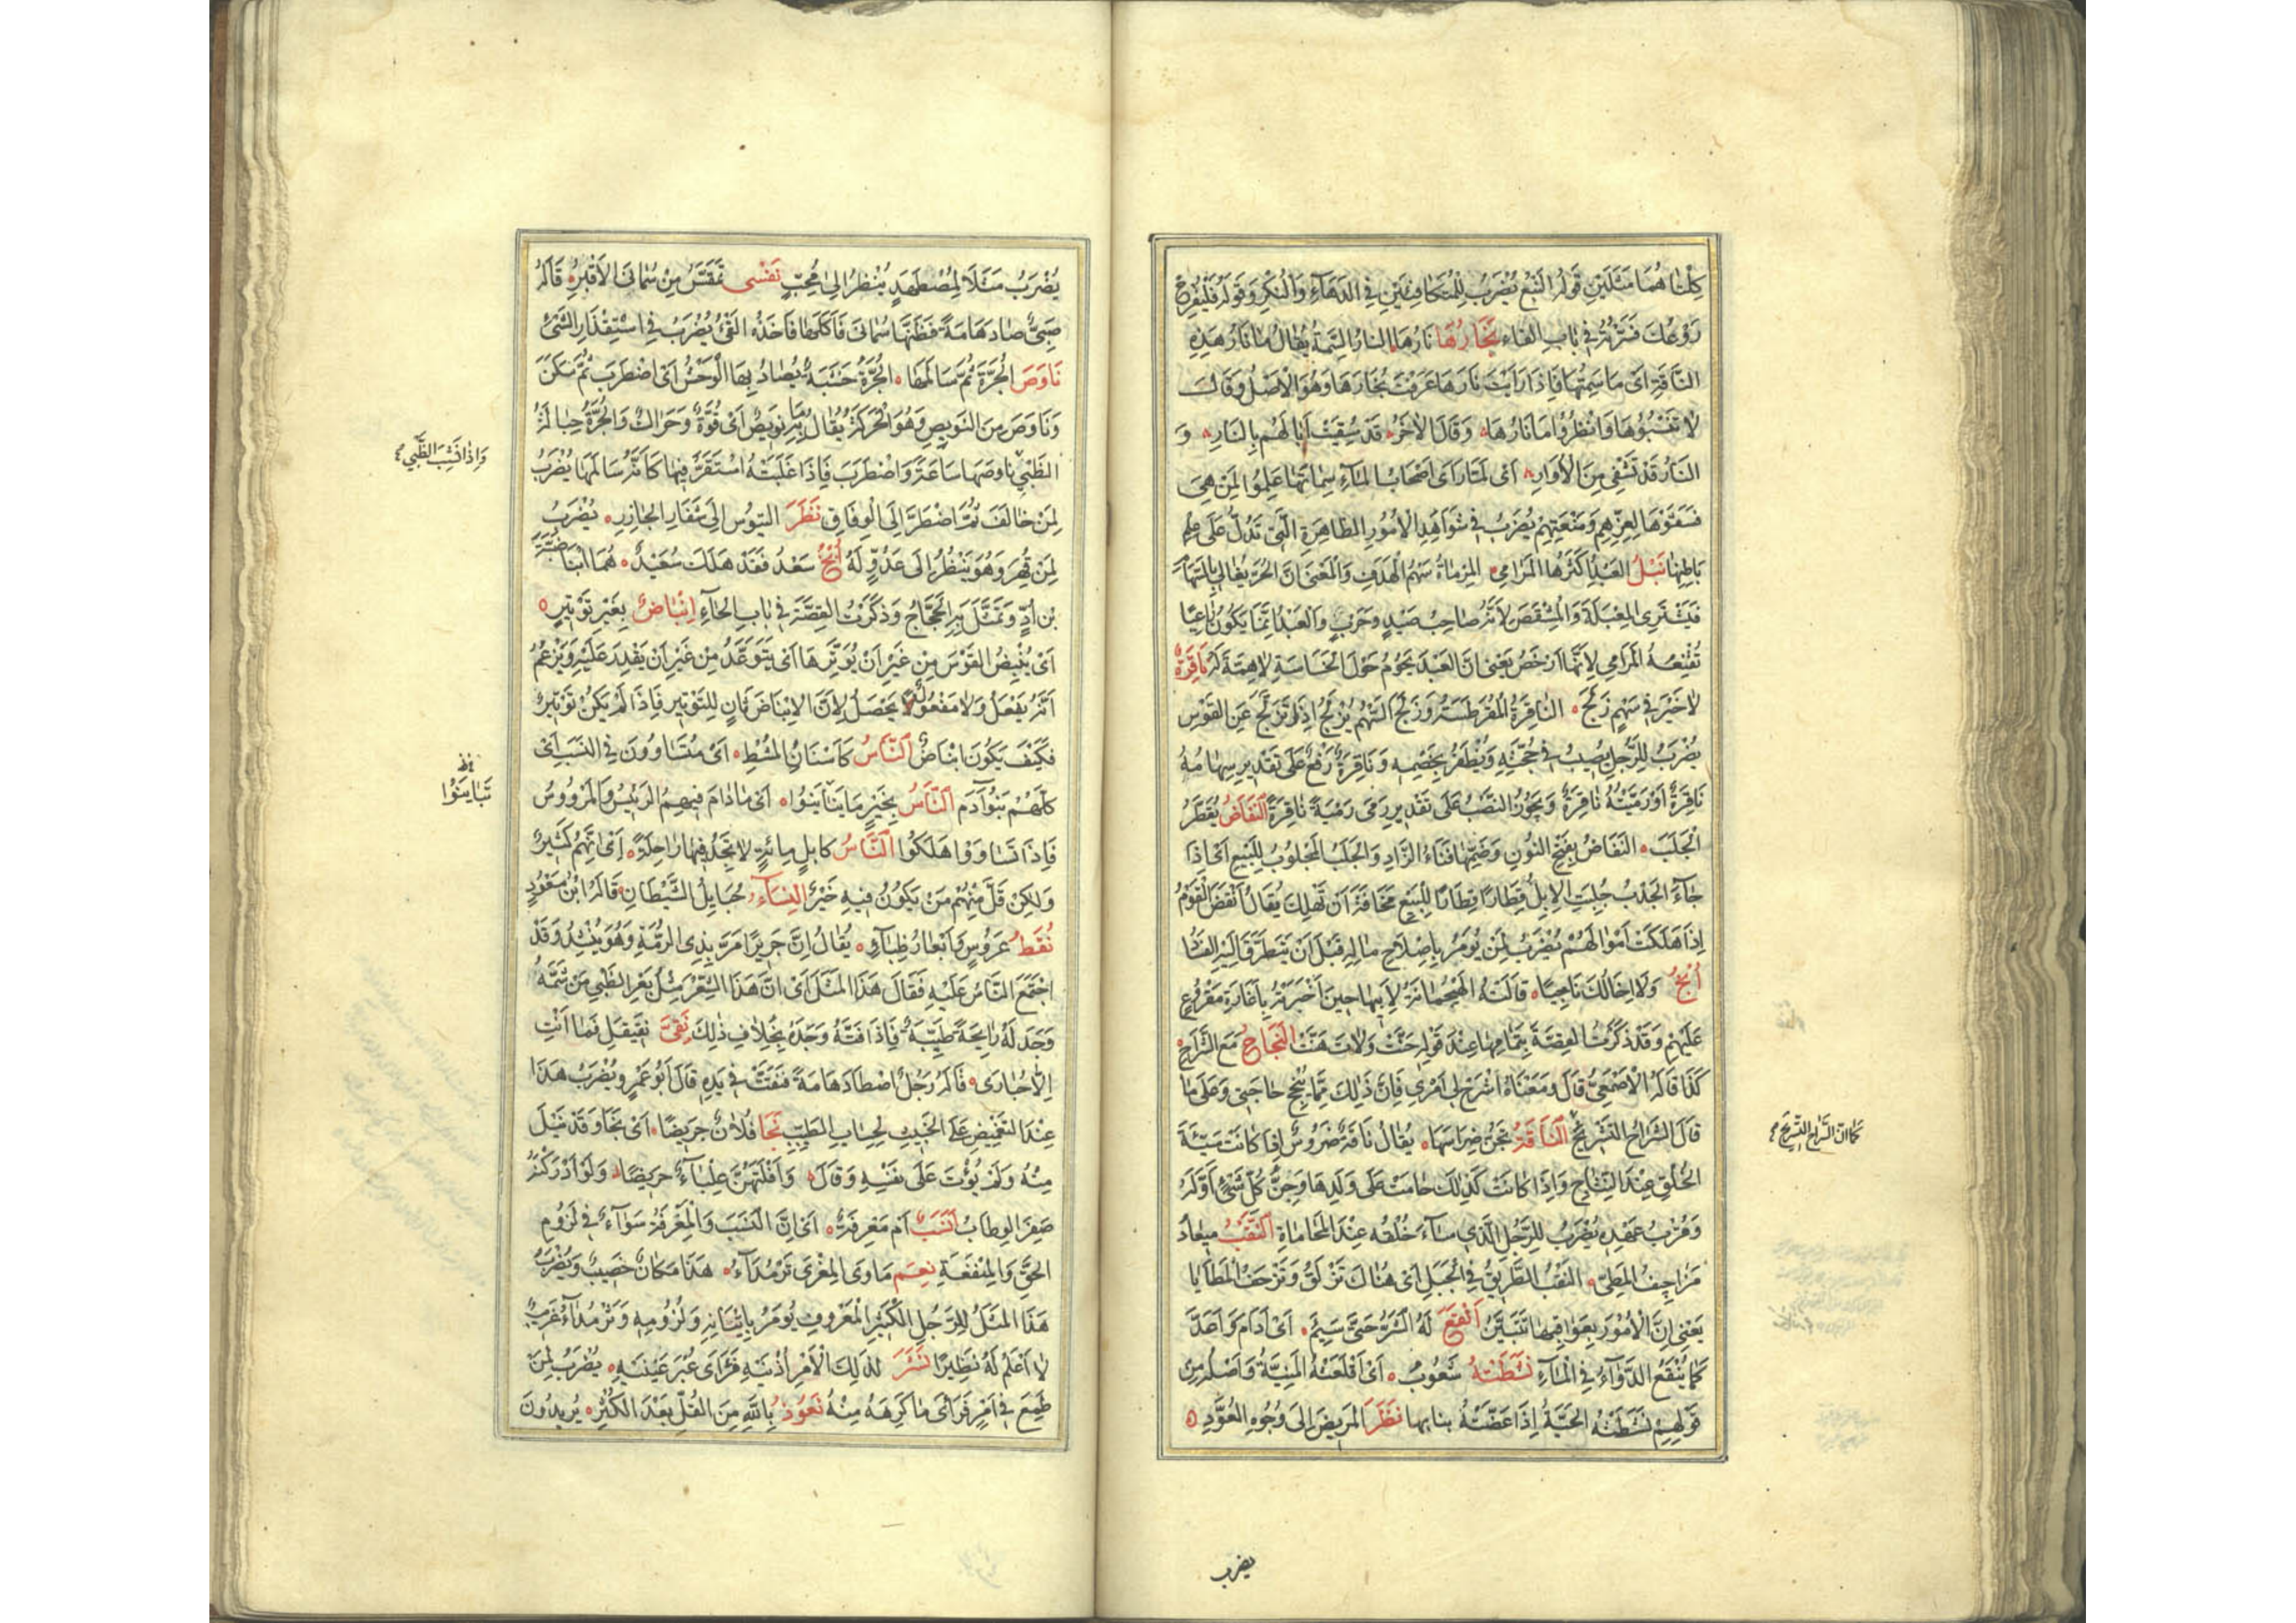 كِلْتَاهُمَا مَثَلَيْنِ قَوْلُهُ النَّبْعُ يُضْرَبُ لِلْمُتَكَافِئَيْنِ فِي الدَّهَاءِ وَالْنُكْرِ وَقَوْلُهُ فَلْيُفْرِخْ
رَوْعُكَ فَسَّرْتُهُ فِي بَابِ الفَاءِ نِجَارُهَا نَارُهَا النَارُ السِّمَةُ يُقَالُ مَا نَارُ هَذِهِ
النَّاقَةِ اَىْ مَا سِمَتُهَا فَإِذَا رَاَيْتَ نَارَهَا عَرَفْتَ نِجَارَهَا وَهُوَ الْاَصْلُ وَقَالَ
لَا تَنْسُبُوهَا وَانْظُرُوا مَا نَارُهَا وَقَالَ الْآخَرُ قَدْ سُقِيَتْ آبَالُهُمْ بِالنَّارِ وَ
النَّارُ قَدْ تَشْفِى مِنَ الْاُوَارِ اَىْ لَمَّا رَاَى اَصْحَابُ الْمَآءِ سِمَاتَهَا عَلِمُوا لِمَنْ هِىَ
فَسَقَوْهَا لِعِزِّهِمْ وَمَنْعَتِهِمْ يُضْرَبُ فِي شَوَاهِدِ الْاُمُورِ الظَّاهِرَةِ الَّتِي تَدُلُّ عَلَى عِلْمِ
بَاطِنِهَا نَبْلُ العَبْدِ اَكْثَرُهَا الْمَرَامِى الْمِرْمَاةُ سَهْمُ الْهَدَفِ وَالْمَعْنَى اَنَّ الْحُرَّ يُغَالِى بِالسِّهَامِ
فَيَشْتَرِى الْمِعْبَلَةَ وَالْمِشْقَصَ لِاَنَّهُ صَاحِبُ صَيْدٍ وَحَرْبٍ وَالْعَبْدُ اِنَّمَا يَكُونُ رَاعِيًا
تُقْنِعُهُ الْمَرَامِى لِاَنَّهَا اَرْخَصُ يَعْنِى اَنَّ العَبْدَ يَحُومُ حَوْلَ الْخَسَاسَةِ لَا هِمَّةَ لَهُ نَاقِرَةٌ
لَا خَيْرَ فِي سَهْمٍ زَلَجَ النَّاقِرَةُ الْمُقَرْطِسَةُ وَزَلَجَ السَّهْمُ يَزْلِجُ اِذَا تَزَلَّجَ عَنِ القَوْسِ
يُضْرَبُ لِلرَّجُلِ يُصِيبُ فِي حُجَّتِهِ وَيُظْفَرُ بِخَصْمِهِ وَنَاقِرَةٌ رَفْعٌ عَلَى تَقْدِيرِ سِهَامُهُ
نَاقِرَةٌ اَوْ رَمْيَتُهُ نَاقِرَةٌ وَيَجُوزُ النَّصْبُ عَلَى تَقْدِيرِ رَمَى رَمْيَةً نَاقِرَةً النُّفَاضُ يُقَطِّرُ
الْجَلَبَ النَّفَاضُ بِفَتْحِ النُّونِ وَضَمِّهَا فَنَاءُ الزَّادِ وَالْجَلَبُ الْمَجْلُوبُ لِلْبَيْعِ اَىْ اِذَا
جَآءَ الْجَدْبُ جُلِبَتِ الْاِبِلُ قِطَارًا قِطَارًا لِلْبَيْعِ مَخَافَةَ اَنْ تَهْلِكَ يُقَالُ اَنْفَضَ الْقَوْمُ
اِذَا هَلَكَتْ اَمْوَالُهُمْ يُضْرَبُ لِمَنْ يُؤْمَرُ بِاِصْلَاحِ مَالِهِ قَبْلَ اَنْ يَتَطَرَّقَ اِلَيْهِ الفَسَادُ
اُنْجُ وَلَا اِخَالُكَ نَاجِيًا قَالَتْهُ الْهَيْجُمَانَةُ لِاَبِيهَا حِينَ اَخْبَرَتْهُ بِاِغَارَةِ مَفْرُوعٍ
عَلَيْهِمْ وَقَدْ ذَكَرْتُ القِصَّةَ بِتَمَامِهَا عِنْدَ قَوْلِهِ حَنَّتْ وَلَاتَ هَنَّتْ النَّجَاحُ مَعَ الشَّرَاحِ
كَذَا قَالَهُ الْاَصْمَعِىُّ قَالَ وَمَعْنَاهُ اشْرَحْ لِى اَمْرِى فَاِنَّ ذٰلِكَ مِمَّا يُنْجِحُ حَاجَتِى وَعَلَى مَا
قَالَ الشَّرَاحُ التَشْرِيحُ النَّاقَةُ جِنٌّ ضِرَاسُهَا يُقَالُ نَاقَةٌ ضَرُوسٌ اِذَا كَانَتْ سَيِّئَةَ
الْخُلُقِ عِنْدَ النِّتَاجِ وَاِذَا كَانَتْ كَذَلِكَ حَامَتْ عَلَى وَلَدِهَا وَجِنُّ كُلِّ شَىْءٍ اَوَّلُهُ
وَقُرْبُ عَهْدِهِ يُضْرَبُ لِلرَّجُلِ الَّذِى سَآءَ خُلُقُهُ عِنْدَ الْمُحَامَاةِ النَّقْبُ مِيعَادُ
مَزَاحِيفُ الْمَطِىِّ النَّقْبُ الطَّرِيقُ فِي الْجَبَلِ اَىْ هُنَاكَ تَزْلَقُ وَتَزْحَفُ الْمَطَايَا
يَعْنِى اِنَّ الْاُمُورَ بِعَوَاقِبِهَا تَتَبَيَّنُ اَنْقَعَ لَهُ الشَّرَّ حَتَّى سَئِمَ اَىْ اَدَامَ وَاَعَدَّ
كَمَا يُنْقَعُ الدَّوَآءُ فِي الْمَآءِ نَشَطَتْهُ شَعُوبُ اَىْ اَقْلَعَتْهُ الْمَنِيَّةُ وَاَصْلُهُ مِنْ
قَوْلِهِمْ نَشَطَتْهُ الْحَيَّةُ اِذَا عَضَّتْهُ بِنَابِهَا نَظَرَ الْمَرِيضِ اِلَى وُجُوهِ الْعُوَّدِ
كما ان السَّرَاحَ التَّسْرِيحُ
يضرب
يُضْرَبُ مَثَلًا لِمُضْطَهَدٍ يَنْظُرُ اِلَى مُحِبٍّ نَفْسِى تَمْقَسُ مِنْ سُمَانَى الْاَقْبُرِ قَالَهُ
صَبِىٌّ صَادَ هَامَةً فَظَنَّهَا سُمَانَى فَاَكَلَهَا فَاَخَذَهُ القَىْءُ يُضْرَبُ فِي اسْتِقْذَارِ الشَّىْءِ
نَاوَصَ الْجُرَّةَ ثُمَّ سَالَمَهَا الْجُرَّةُ خَشَبَةٌ يُصَادُ بِهَا الْوَحْشُ اَىِ اضْطَرَبَ ثُمَّ سَكَنَ
وَنَاوَصَ مِنَ النَّوِيصِ وَهُوَ الْحَرَكَةُ يُقَالُ مَا بِهِ نَوِيصٌ اَىْ قُوَّةٌ وَحَرَاكٌ وَالْجُرَّةُ حِبَالَةُ
الظَّبْىِ نَاوَصَهَا سَاعَةً وَاضْطَرَبَ فَاِذَا غَلَبَتْهُ اسْتَقَرَّ فِيهَا كَاَنَّهُ سَالَمَهَا يُضْرَبُ
لِمَنْ خَالَفَ ثُمَّ اضْطَرَّ اِلَى الْوِفَاقِ نَظَرَ التيوس اِلَى شِفَارِ الْجَازِرِ يُضْرَبُ
لِمَنْ قُهِرَ وَهُوَ يَنْظُرُ اِلَى عَدُوِّ لَهُ اُنْجُ سَعْدُ فَقَدْ هَلَكَ سُعَيْدٌ هُمَا ابْنَا ضَبَّةَ
بْنِ اُدٍّ وَتَمَثَّلَ بِهِ الْحَجَّاجُ وَذَكَرْتُ القِصَّةَ فِي بَابِ الْحَآءِ اِنْبَاضٌ بِغَيْرِ تَوْتِيرٍ
اَىْ يُنْبِضُ القَوْسَ مِنْ غَيْرِ اَنْ يُوَتِّرَهَا اَىْ يَتَوَعَّدُ مِنْ غَيْرِ اَنْ يَقْدِرَ عَلَيْهِ وَيَزْعُمُ
اَنَّهُ يَفْعَلُ وَلَا مَفْعُولَ يَحْصُلُ لِاَنَّ الْاِنْبَاضَ ثَانٍ لِلتَوْتِيرِ فَاِذَا لَمْ يَكُنْ تَوْتِيرٌ
فَكَيْفَ يَكُونُ اِنْبَاضٌ النَّاسُ كَاَسْنَانِ الْمُشْطِ اَىْ مُتَسَاوُونَ فِي النَسَبِ اَىْ
كُلُّهُمْ بَنُو آدَمَ النَّاسُ بِخَيْرٍ مَا تَبَايَنُوا اَىْ مَا دَامَ فِيهِمُ الرَئِيسُ وَالْمَرْؤُوسُ
فَاِذَا تَسَاوَوْا هَلَكُوا النَّاسُ كَاِبِلٍ مِائَةٍ لَا تَجِدُ فِيهَا رَاحِلَةً اَىْ اِنَّهُمْ كَثِيرٌ
وَلٰكِنْ قَلَّ مِنْهُمْ مَنْ يَكُونُ فِيهِ خَيْرٌ النِّسَآءُ حَبَايِلُ الشَّيْطَانِ قَالَهُ ابْنُ مَسْعُودٍ
نُقَطُ عَرُوسٍ وَاَبْعَارُ ظِبَآءٍ يُقَالُ اِنَّ جَرِيرًا مَرَّ بِذِى الرُّمَّةِ وَهُوَ يُنْشِدُ وَقَدْ
اجْتَمَعَ النَّاسُ عَلَيْهِ فَقَالَ هَذَا الْمَثَلَ اَىْ اِنَّ هَذَا الشِّعْرَ مِثْلُ بَعْرِ الظَّبْىِ مَنْ شَمَّهُ
وَجَدَ لَهُ رَايِحَةً طَيِّبَةً فَاِذَا فَتَّهُ وَجَدَهُ بِخِلَافِ ذٰلِكَ نِقِّى نَقِيقَكِ فَمَا اَنْتِ
اِلَّا حُبَارَى قَالَهُ رَجُلٌ اصْطَادَ هَامَةً فَنَقَّتْ فِي يَدِهِ قَالَ اَبُو عَمْرٍو يُضْرَبُ هَذَا
عِنْدَ التَّغْمِيضِ عَلَى الْخَبِيثِ لِحِسَابِ الطَيِّبِ نَجَا فُلَانٌ جَرِيضًا اَىْ نَجَا وَقَدْ نِيلَ
مِنْهُ وَلَمْ يُؤْتَ عَلَى نَفْسِهِ وَقَالَ وَاَفْلَتَهُنَّ عِلْبَآءٌ جَرِيضًا وَلَوْ اَدْرَكْنَهُ
صَفِرَ الوِطَابُ اَنَسَبٌ اَمْ مَعْرِفَةٌ اَىْ اِنَّ النَسَبَ وَالْمَعْرِفَةَ سَوَآءٌ فِي لُزُومِ
الْحَقِّ وَالْمَنْفَعَةِ نِعْمَ مَاوَى الْمِعْزَى ثَرْمَدَآءُ هَذَا مَكَانٌ خَصِيبٌ وَيُضْرَبُ
هَذَا الْمَثَلُ لِلرَّجُلِ الْكَثِيرِ الْمَعْرُوفِ يُؤْمَرُ بِاِتْيَانِهِ وَلُزُومِهِ وَثَرْمَدَآءُ غَرِيبٌ
لَا اَعْلَمُ لَهُ نَظِيرًا نَشَرَ لِذَلِكَ الْاَمْرِ اُذُنَيْهِ فَرَاَى عُبْرَ عَيْنَيْهِ يُضْرَبُ لِمَنْ
طَمِعَ فِي اَمْرٍ فَرَاَى مَا كَرِهَهُ مِنْهُ نَعُوذُ بِاللّٰهِ مِنَ القُلِّ بَعْدَ الكُثْرِ يُرِيدُونَ
وَاِذَا نَشِبَ الظَّبْىُ
تَبَايَنُوْا